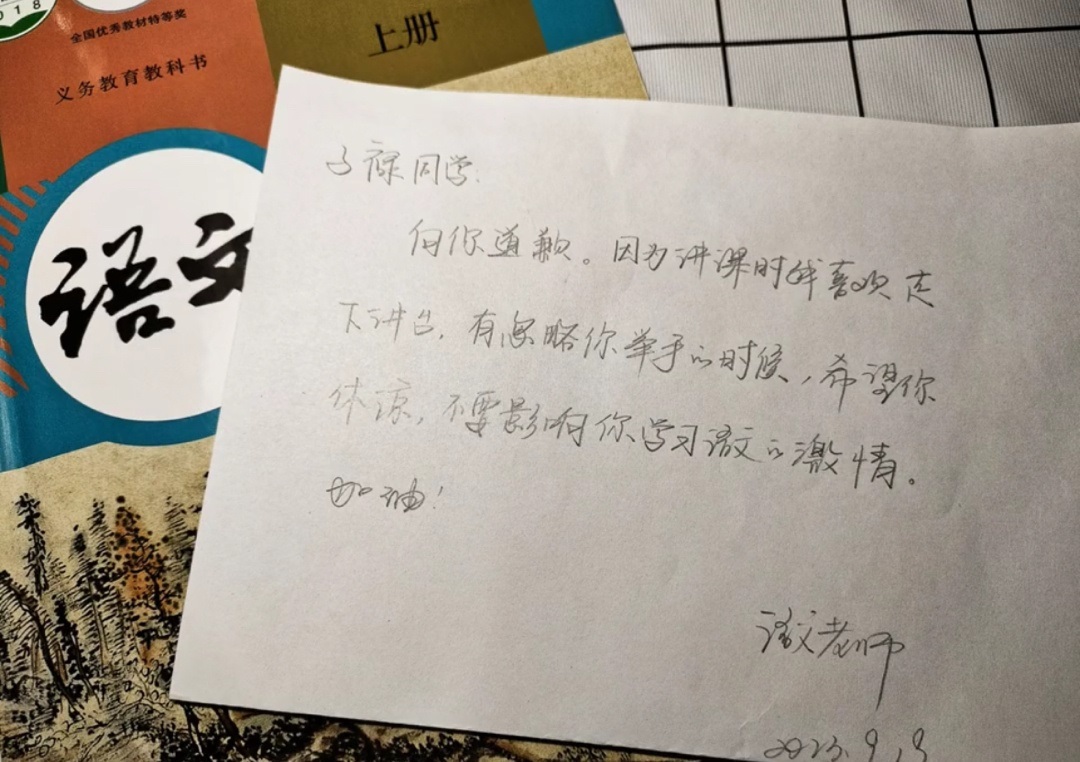 2018
全国优秀教材特等奖
义务教育教科书
上册
语文
子禄同学:
向你道歉。因为讲课时我喜欢走
下讲台,有忽略你举手的时候,希望你
体谅,不要影响你学习语文的激情。
加油!
语文老师
2023.9.8